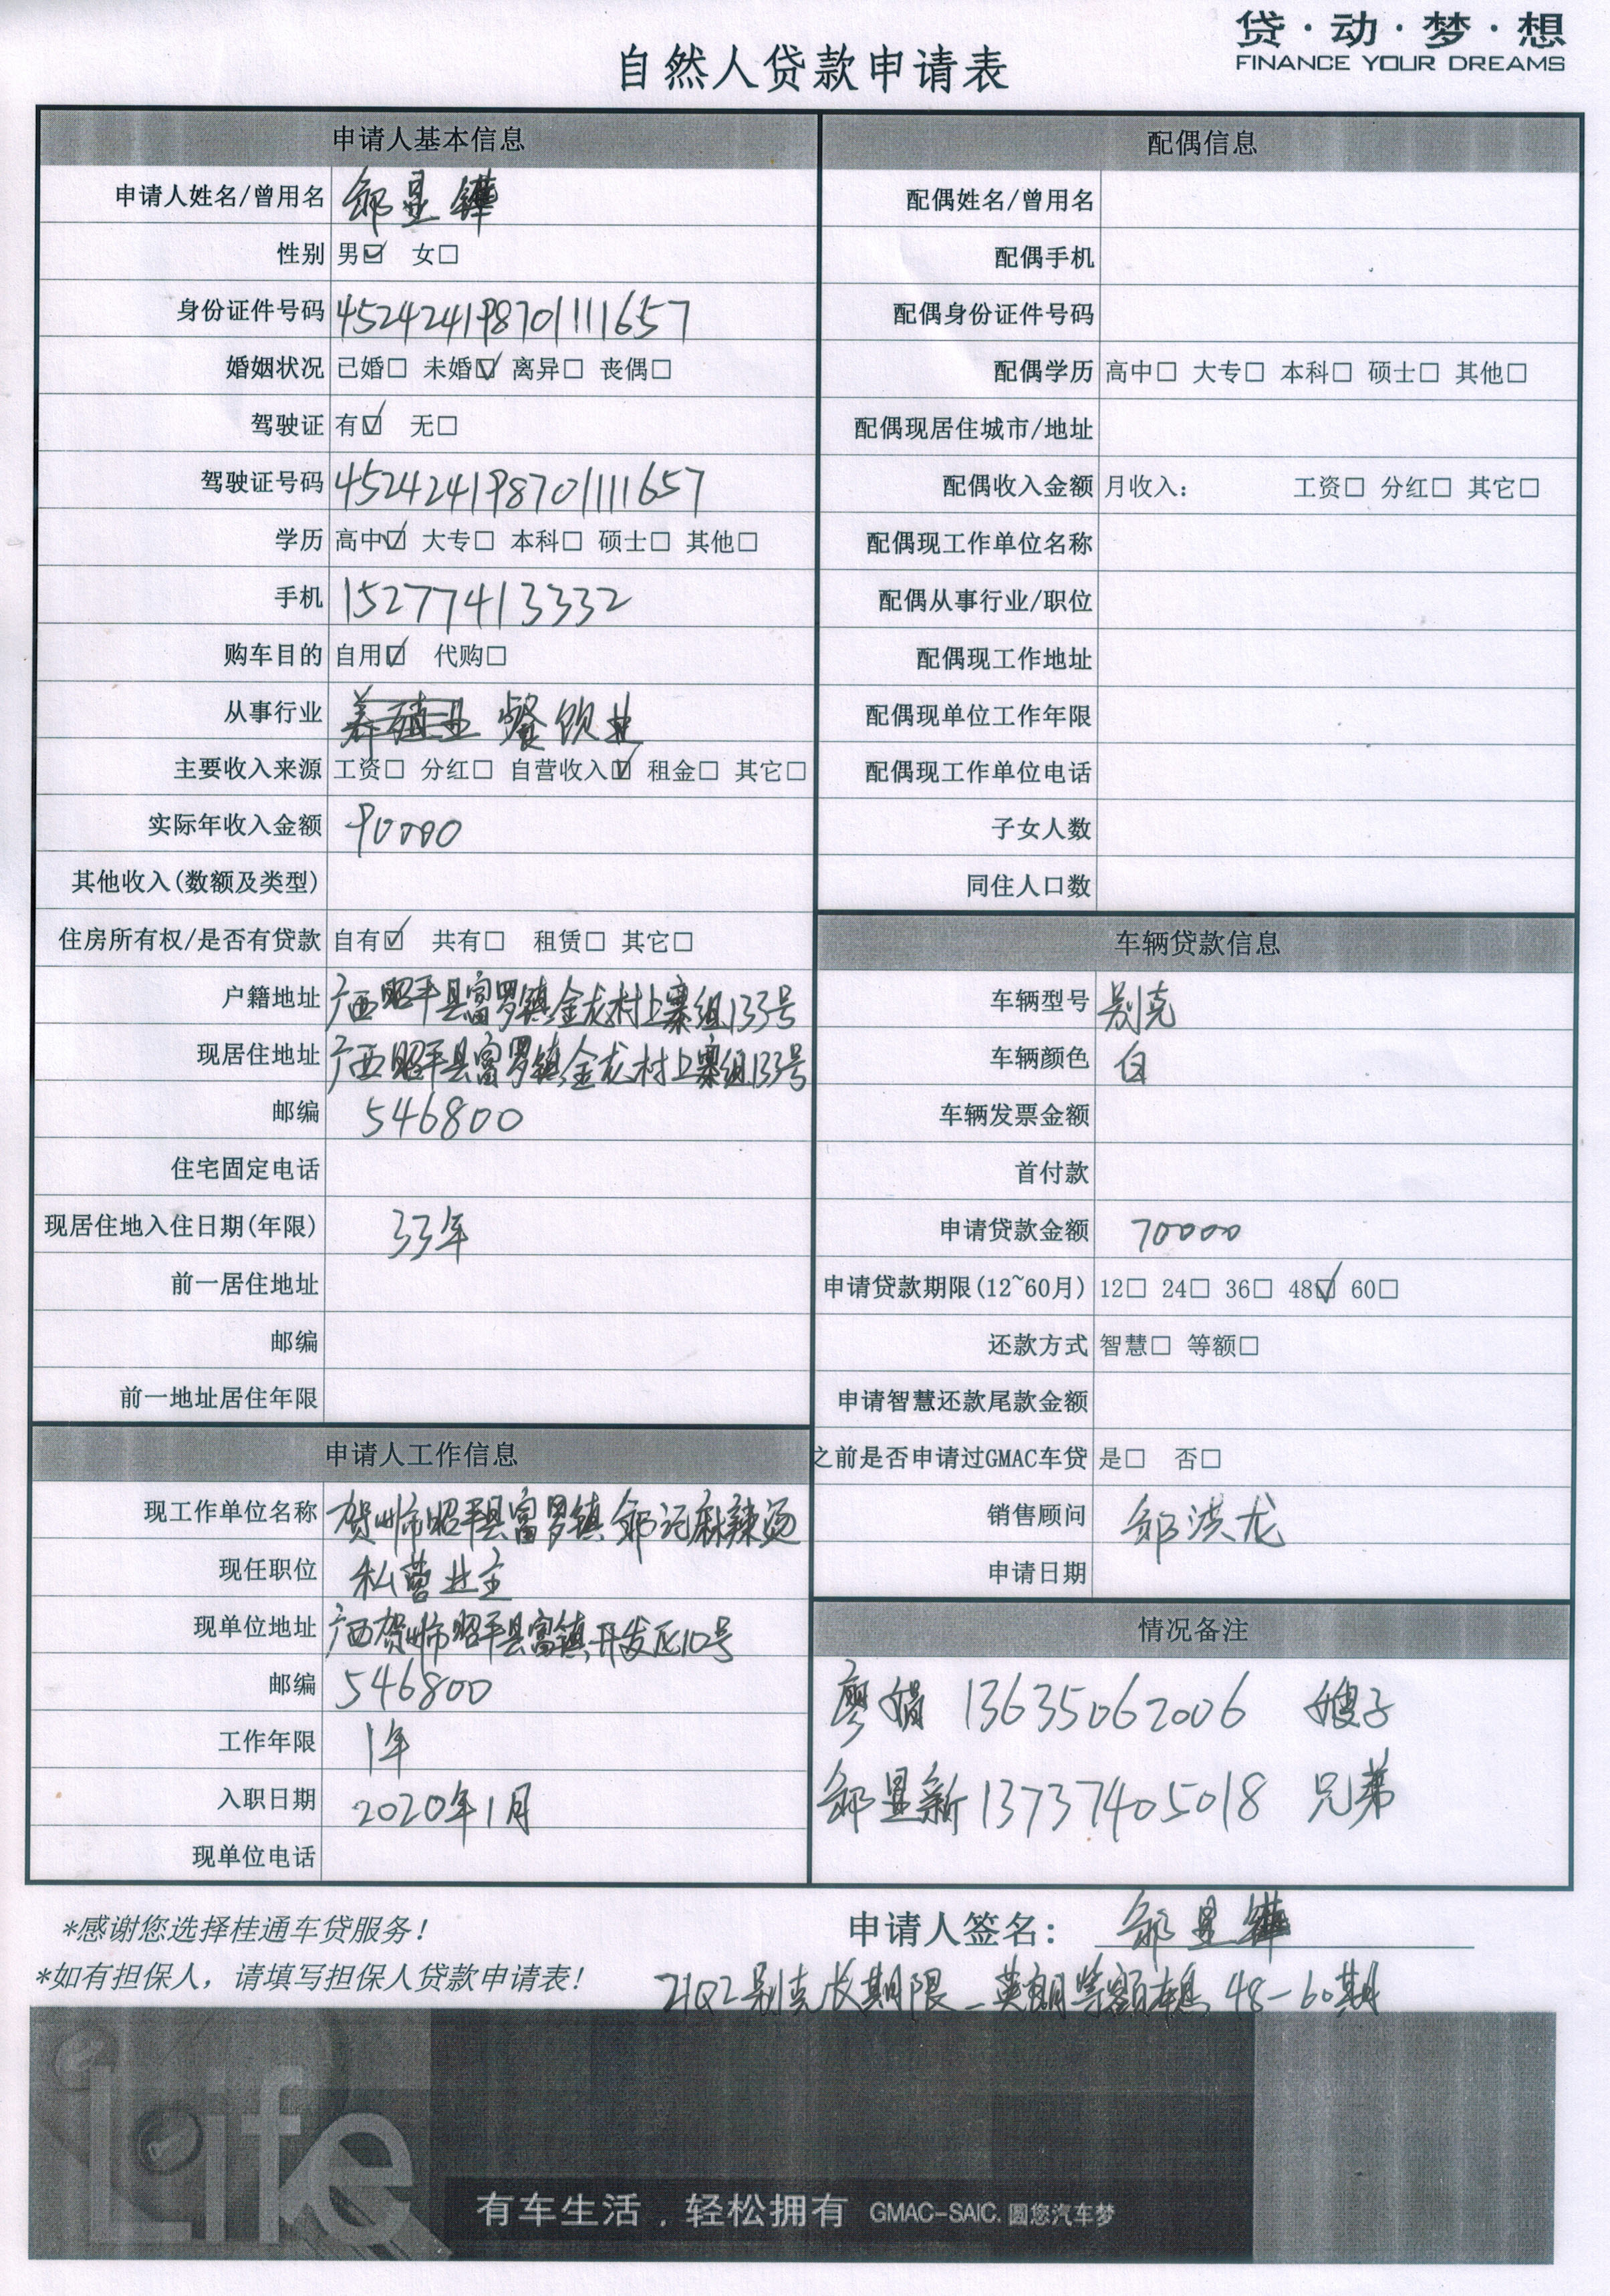 贷·动·梦·想
FINANCE YOUR DREAMS
自然人贷款申请表
申请人基本信息
申请人姓名/曾用名 邹显
性别 男☑ 女□
身份证件号码 452424198701111657
婚姻状况 已婚□ 未婚☑ 离异□ 丧偶□
驾驶证 有☑ 无□
驾驶证号码 452424198701111657
学历 高中☑ 大专□ 本科□ 硕士□ 其他□
手机 15277413332
购车目的 自用☑ 代购□
从事行业 养殖业 餐饮业
主要收入来源 工资□ 分红□ 自营收入☑ 租金□ 其它□
实际年收入金额 90000
其他收入(数额及类型)
住房所有权/是否有贷款 自有☑ 共有□ 租赁□ 其它□
户籍地址 广西昭平县富罗镇金龙村上寨组133号
现居住地址 广西昭平县富罗镇金龙村上寨组133号
邮编 546800
住宅固定电话
现居住地入住日期(年限) 33年
前一居住地址
邮编
前一地址居住年限
申请人工作信息
现工作单位名称 贺州市昭平县富罗镇邹记麻辣烫
现任职位 私营业主
现单位地址 广西贺州市昭平县富镇开发区10号
邮编 546800
工作年限 1年
入职日期 2020年1月
现单位电话
配偶信息
配偶姓名/曾用名
配偶手机
配偶身份证件号码
配偶学历 高中□ 大专□ 本科□ 硕士□ 其他□
配偶现居住城市/地址
配偶收入金额 月收入: 工资□ 分红□ 其它□
配偶现工作单位名称
配偶从事行业/职位
配偶现工作地址
配偶现单位工作年限
配偶现工作单位电话
子女人数
同住人口数
车辆贷款信息
车辆型号 别克
车辆颜色 白
车辆发票金额
首付款
申请贷款金额 70000
申请贷款期限(12~60月) 12□ 24□ 36□ 48☑ 60□
还款方式 智慧□ 等额□
申请智慧还款尾款金额
之前是否申请过GMAC车贷 是□ 否□
销售顾问 邹洪龙
申请日期
情况备注
廖娟 13635062006 嫂子
邹显新 13737405018 兄弟
*感谢您选择桂通车贷服务!
申请人签名: 邹显
*如有担保人，请填写担保人贷款申请表!
21Q2别克长期限_英朗等额本息 48-60期
Life
有车生活，轻松拥有 GMAC-SAIC. 圆您汽车梦